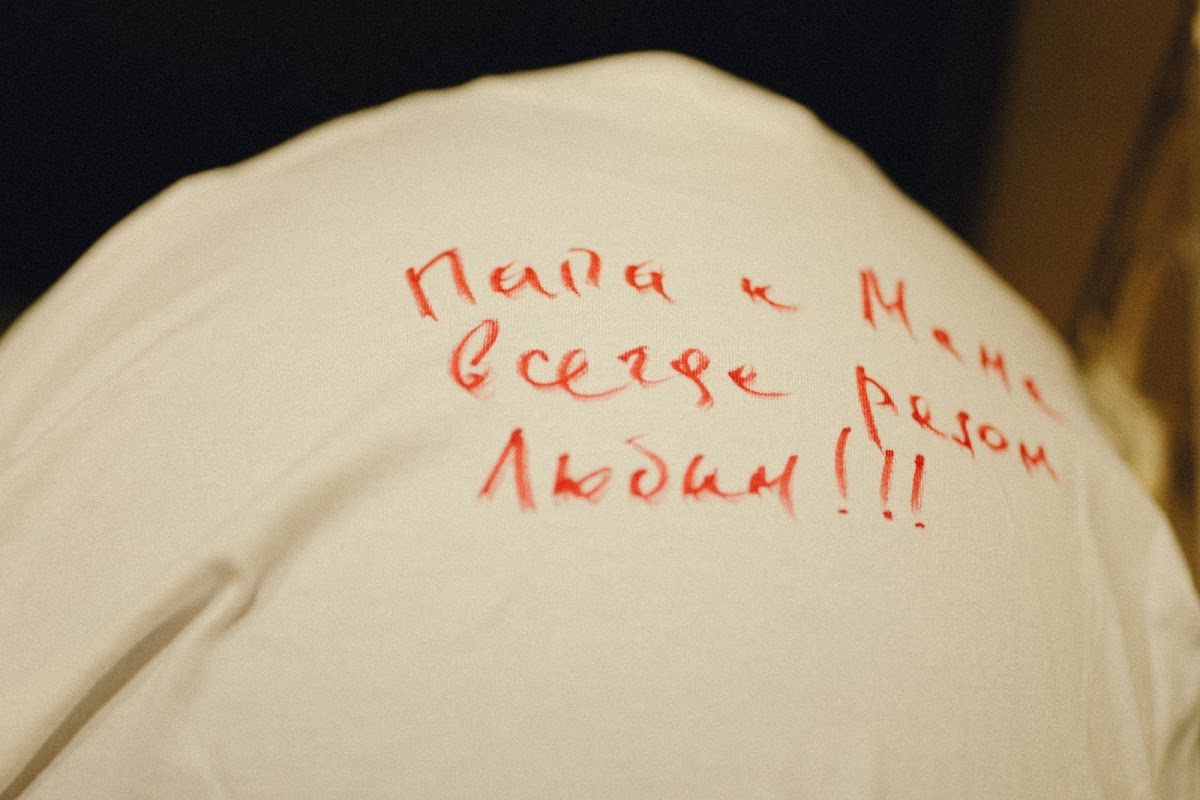 Папа и Мама
всегда рядом
Любим!!!